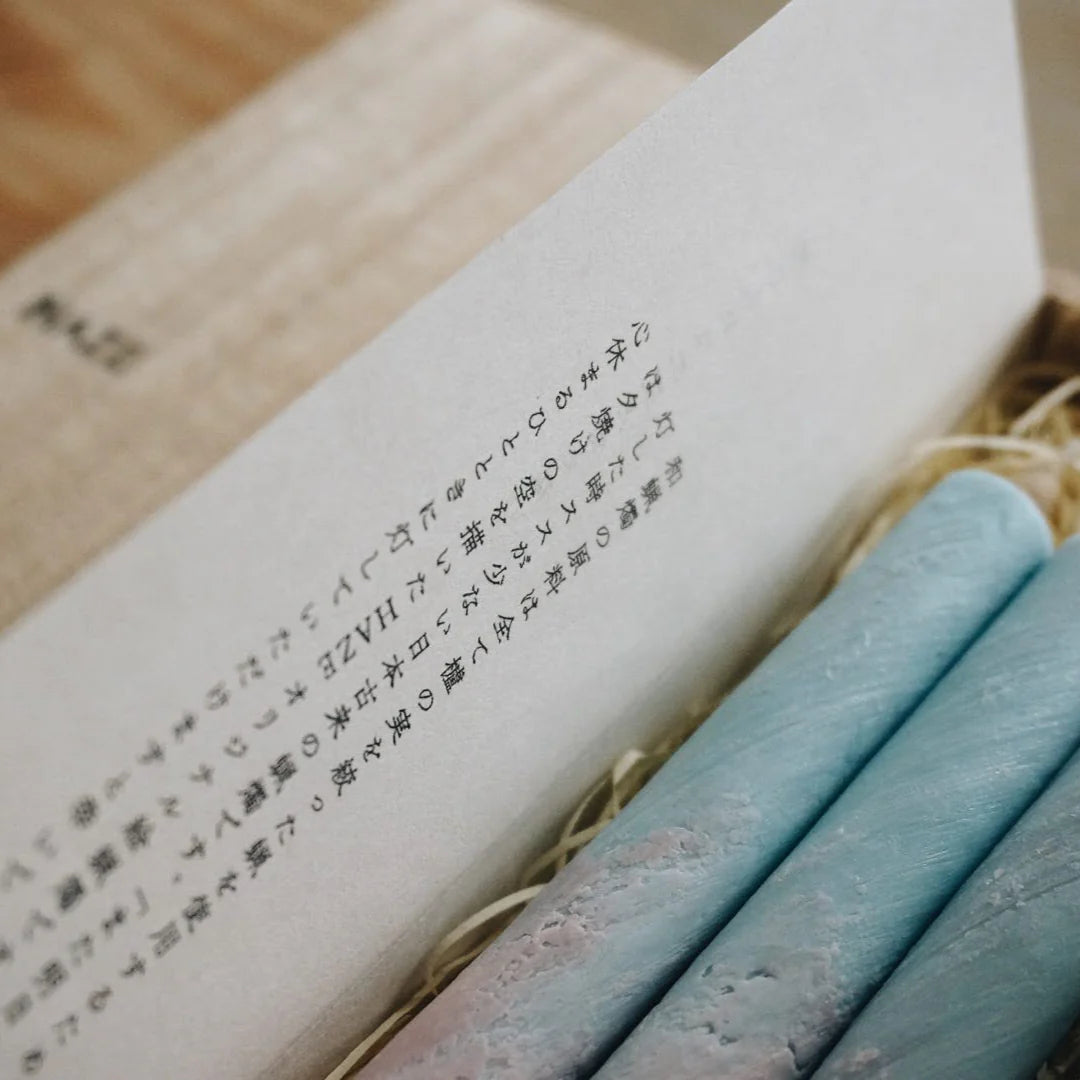 和蝋燭の原料は全て櫨の実を絞った蝋を使用するため
灯した時ススが少ない日本古来の蝋燭です。「また明日
は夕焼けの空を描いた HAZE オリジナル絵蝋燭です
心休まるひとときに灯していただけますと幸いで